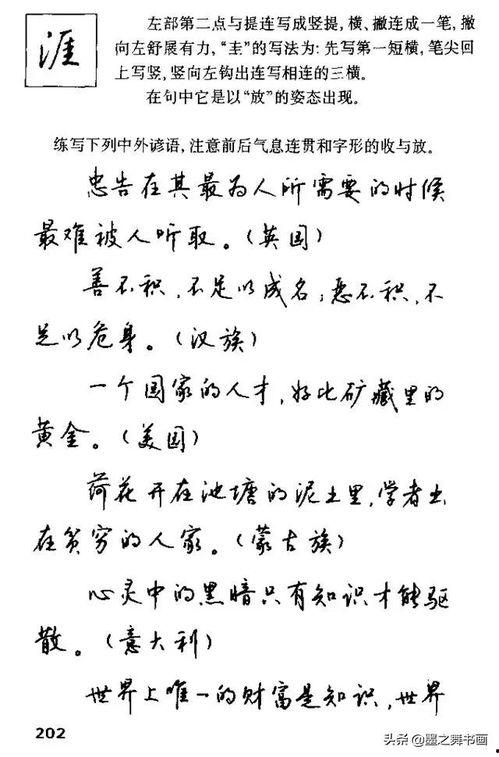 涯
左部第二点与提连写成竖提,横、撇连成一笔,撇
向左舒展有力,“圭”的写法为:先写第一短横,笔尖回
上写竖,竖向左钩出连写相连的三横。
在句中它是以“放”的姿态出现。
练写下列中外谚语,注意前后气息连贯和字形的收与放。
忠告在其最为人所需要的时候
最难被人听取。(英国)
善不积,不足以成名;恶不积,不
足以危身。(汉族)
一个国家的人才,好比矿藏里的
黄金。(美国)
荷花开在池塘的泥土里,学者出
在贫穷的人家。(蒙古族)
心灵中的黑暗只有知识才能驱
散。(意大利)
世界上唯一的财富是知识,世界
202
头条@墨之舞书画